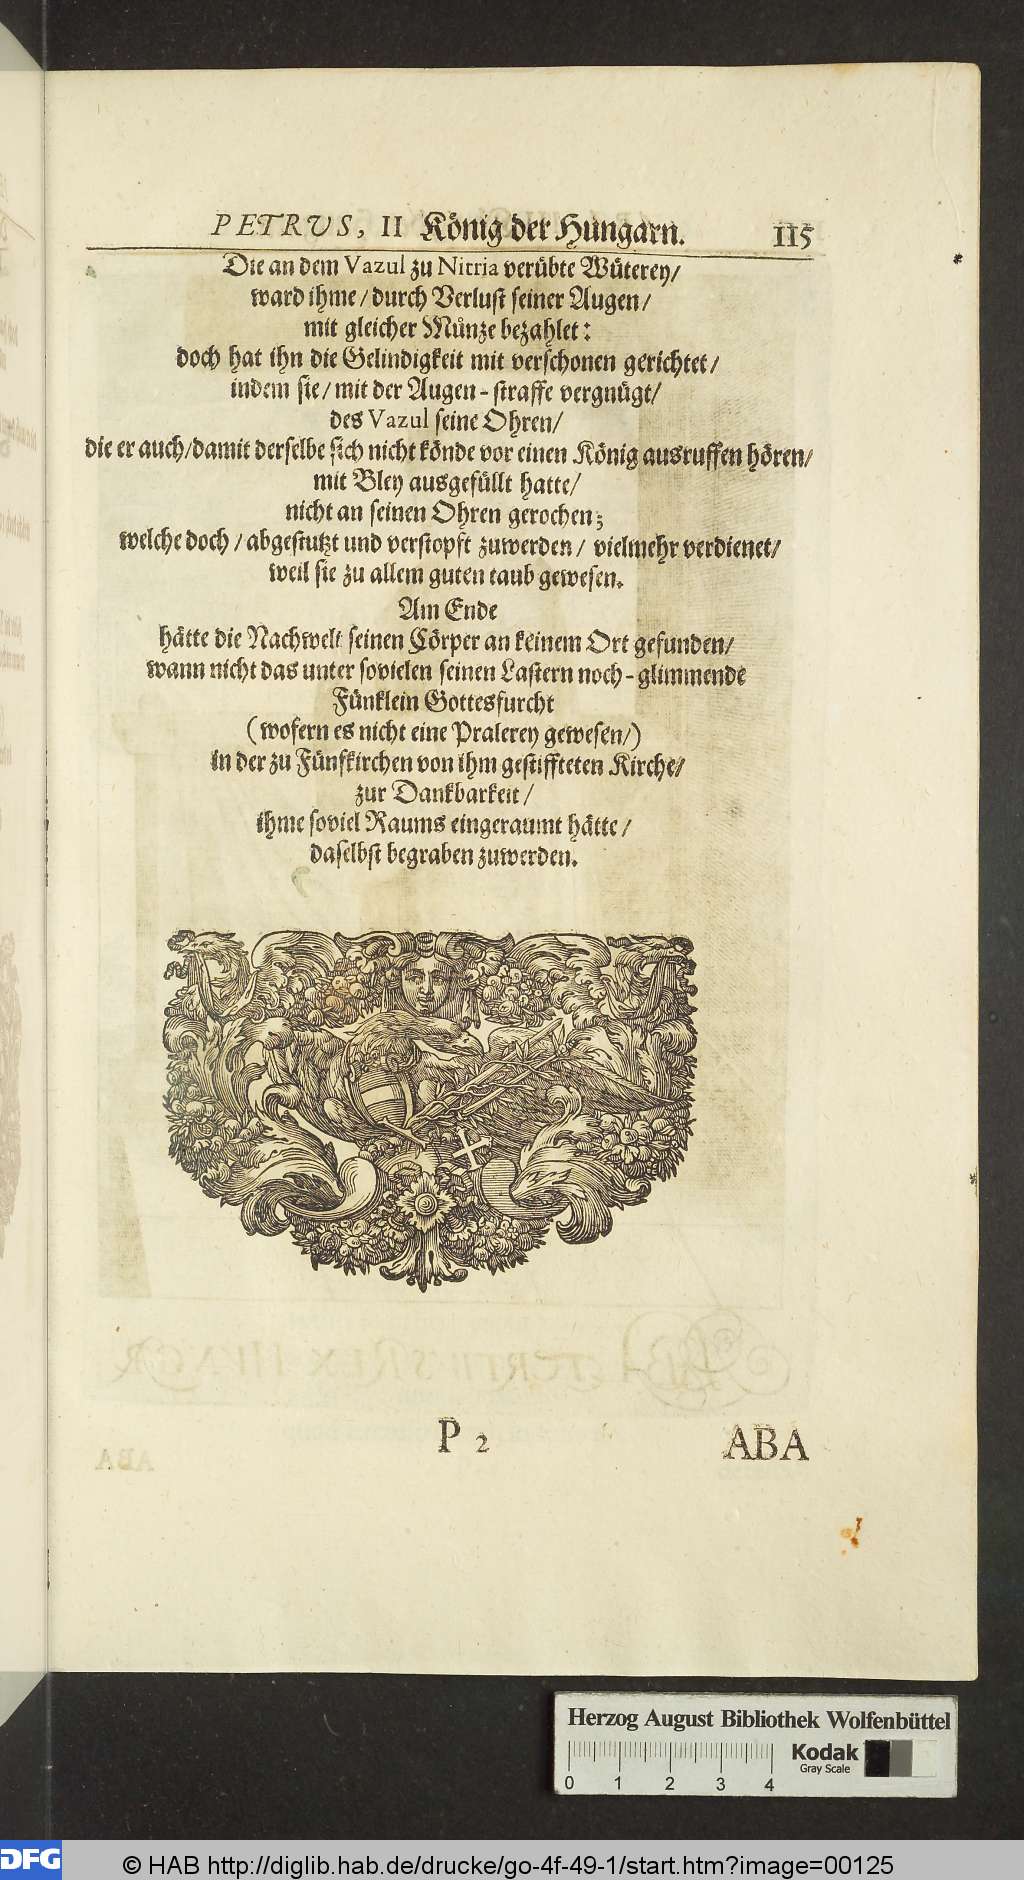 PETRVS, II König der Hungarn. 115
Die an dem Vazul zu Nitria verübte Wüterey/
ward ihme / durch Verlust seiner Augen /
mit gleicher Münze bezahlet:
doch hat ihn die Gelindigkeit mit verschonen gerichtet /
indem sie / mit der Augen-straffe vergnügt/
des Vazul seine Ohren/
die er auch/damit derselbe sich nicht könde vor einen König ausruffen hören/
mit Bley ausgefüllt hatte/
nicht an seinen Ohren gerochen;
welche doch / abgestutzt und verstopft zuwerden / vielmehr verdienet/
weil sie zu allem guten taub gewesen.
Am Ende
hätte die Nachwelt seinen Cörper an keinem Ort gefunden/
wann nicht das unter sovielen seinen Lastern noch-glimmende
Fünklein Gottesfurcht
(wofern es nicht eine Pralerey gewesen/)
in der zu Fünfkirchen von ihm gestiffteten Kirche/
zur Dankbarkeit /
ihme soviel Raums eingeraumt hätte /
daselbst begraben zuwerden.
P 2 ABA
Herzog August Bibliothek Wolfenbüttel
Kodak
Gray Scale
0 1 2 3 4
DFG © HAB http://diglib.hab.de/drucke/go-4f-49-1/start.htm?image=00125